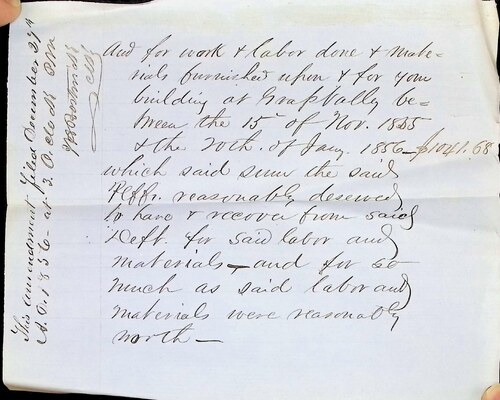 And for work & labor done & mate=
rials furnished upon & for your
building at Grass Vally be=
tween the 15th of Nov. 1855
& the 20th. of Jany. 1856 - $1041.68
which said sum the said
Plffr. reasonably deserved
to have & recover from said
Deft. for said labor and
materials, and for so
much as said labor and
materials were reasonably
worth —
This amendment filed December 29th
A.D. 1856 - at 3. O. clock P.M